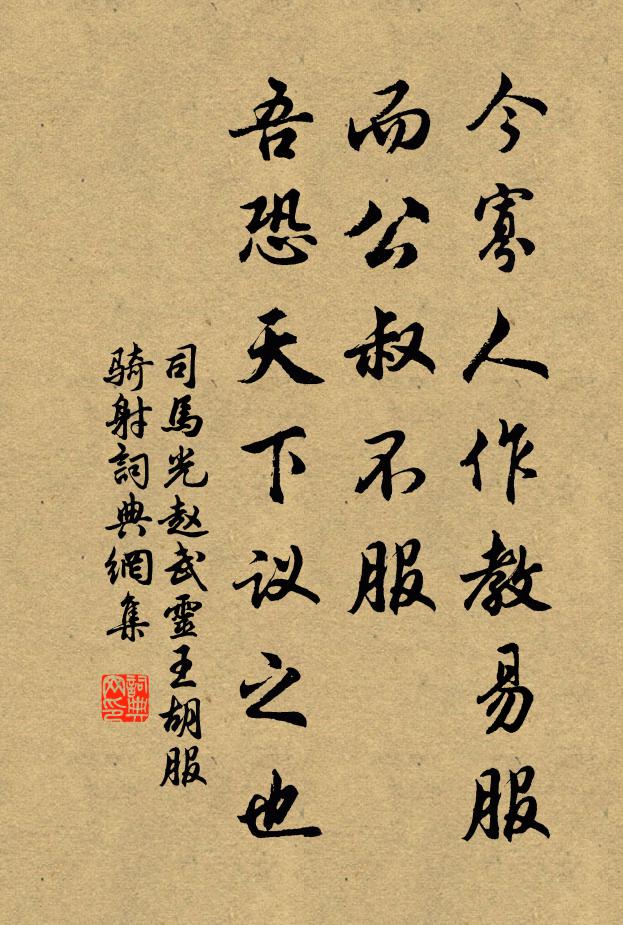 今寡人作教易服
而公叔不服
吾恐天下议之也
司馬光赵武靈王胡服
騎射詞典網集
詞典